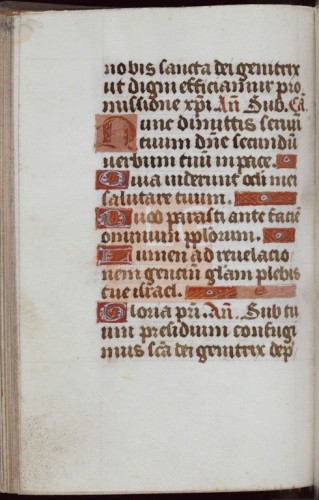 nobis sancta dei genitrix
ut digni efficiamur pro
missione xpi. An̄. Sub. Cā.
Nunc dimittis seruū
tuum dn̄e secundū
uerbum tuū in pace.
Quia uiderunt oculi mei
salutare tuum.
Quod parasti ante faciē
omnium pplorum.
Lumen ad reuelacio
nem gentiū glam plebis
tue israel.
Gloria pri. An̄. Sub tu
um presidium confugi
mus scā dei genitrix dep̄